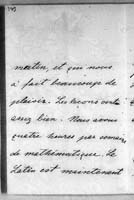 matin, et qui nous
a fait beaucoup de
plaisir. Les leçons vont
assez bien. Nous avons
quatre heures par semaine
de mathématique. Le
Latin est maintenant